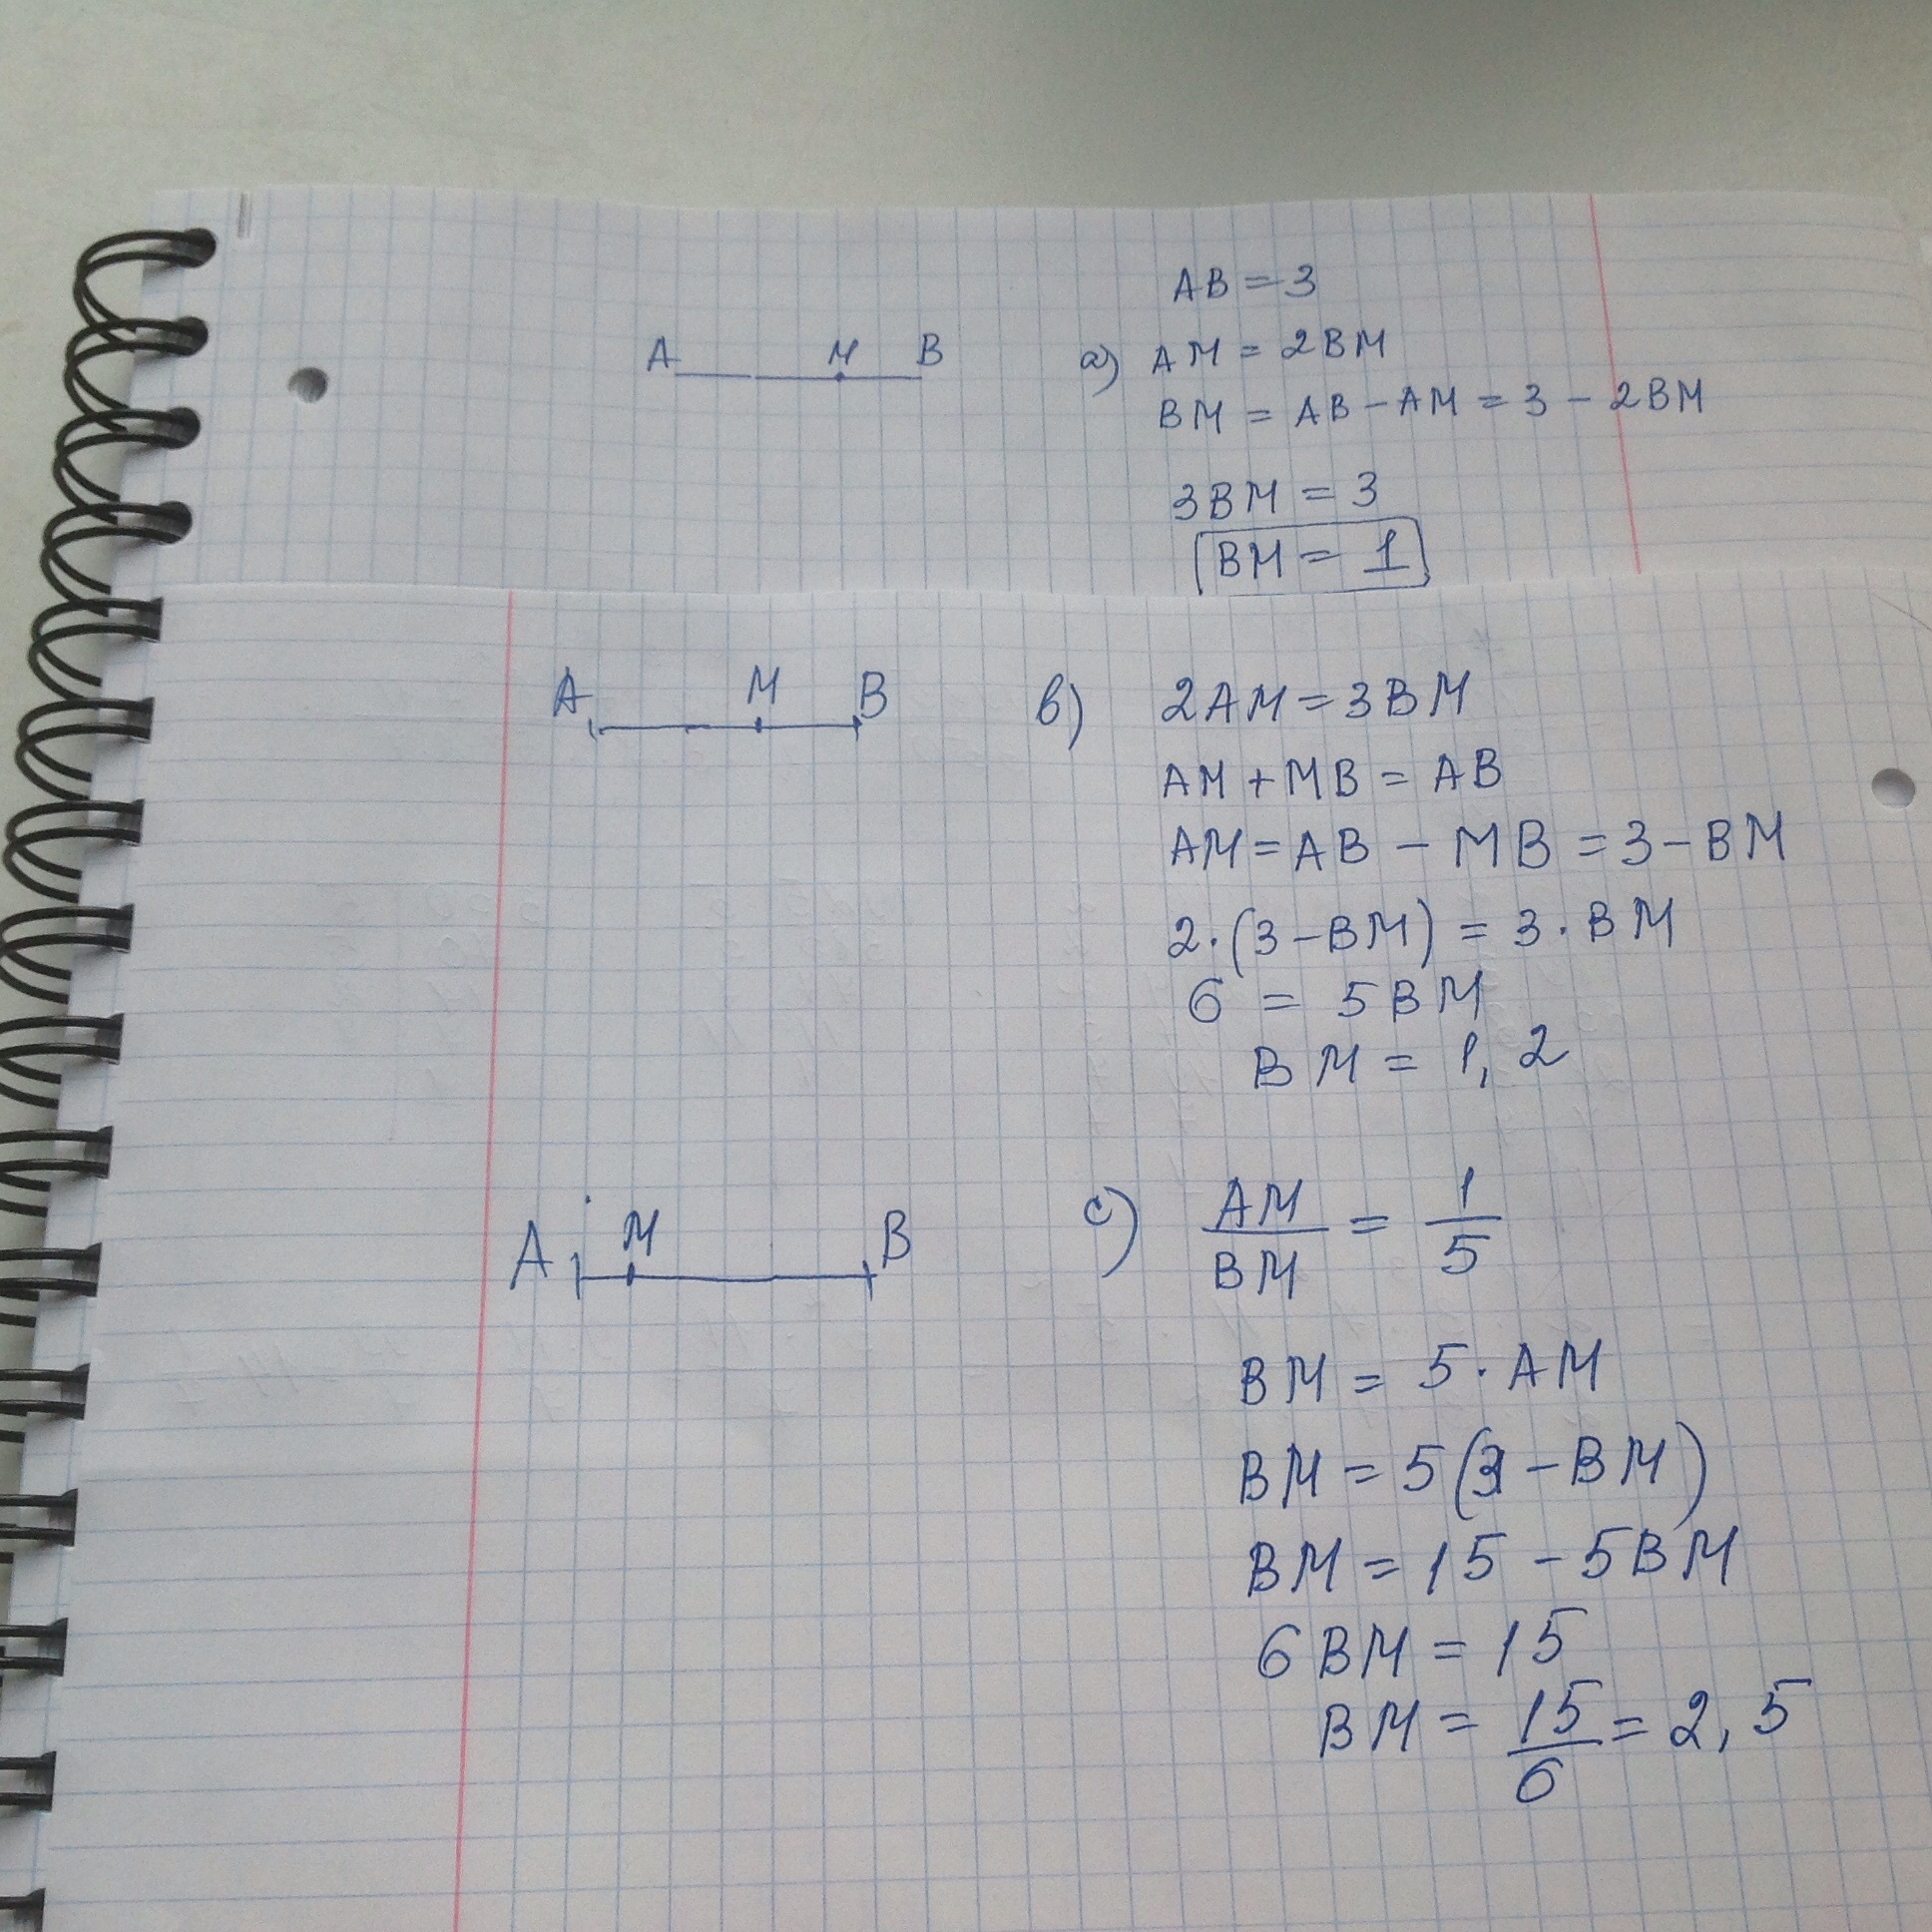 AB = 3
A M B
a) AM = 2BM
BM = AB - AM = 3 - 2BM
3BM = 3
BM = 1
A M B
в) 2AM = 3BM
AM + MB = AB
AM = AB - MB = 3 - BM
2·(3 - BM) = 3·BM
6 = 5BM
BM = 1,2
A M B
c) AM/BM = 1/5
BM = 5·AM
BM = 5(3 - BM)
BM = 15 - 5BM
6BM = 15
BM = 15/6 = 2,5